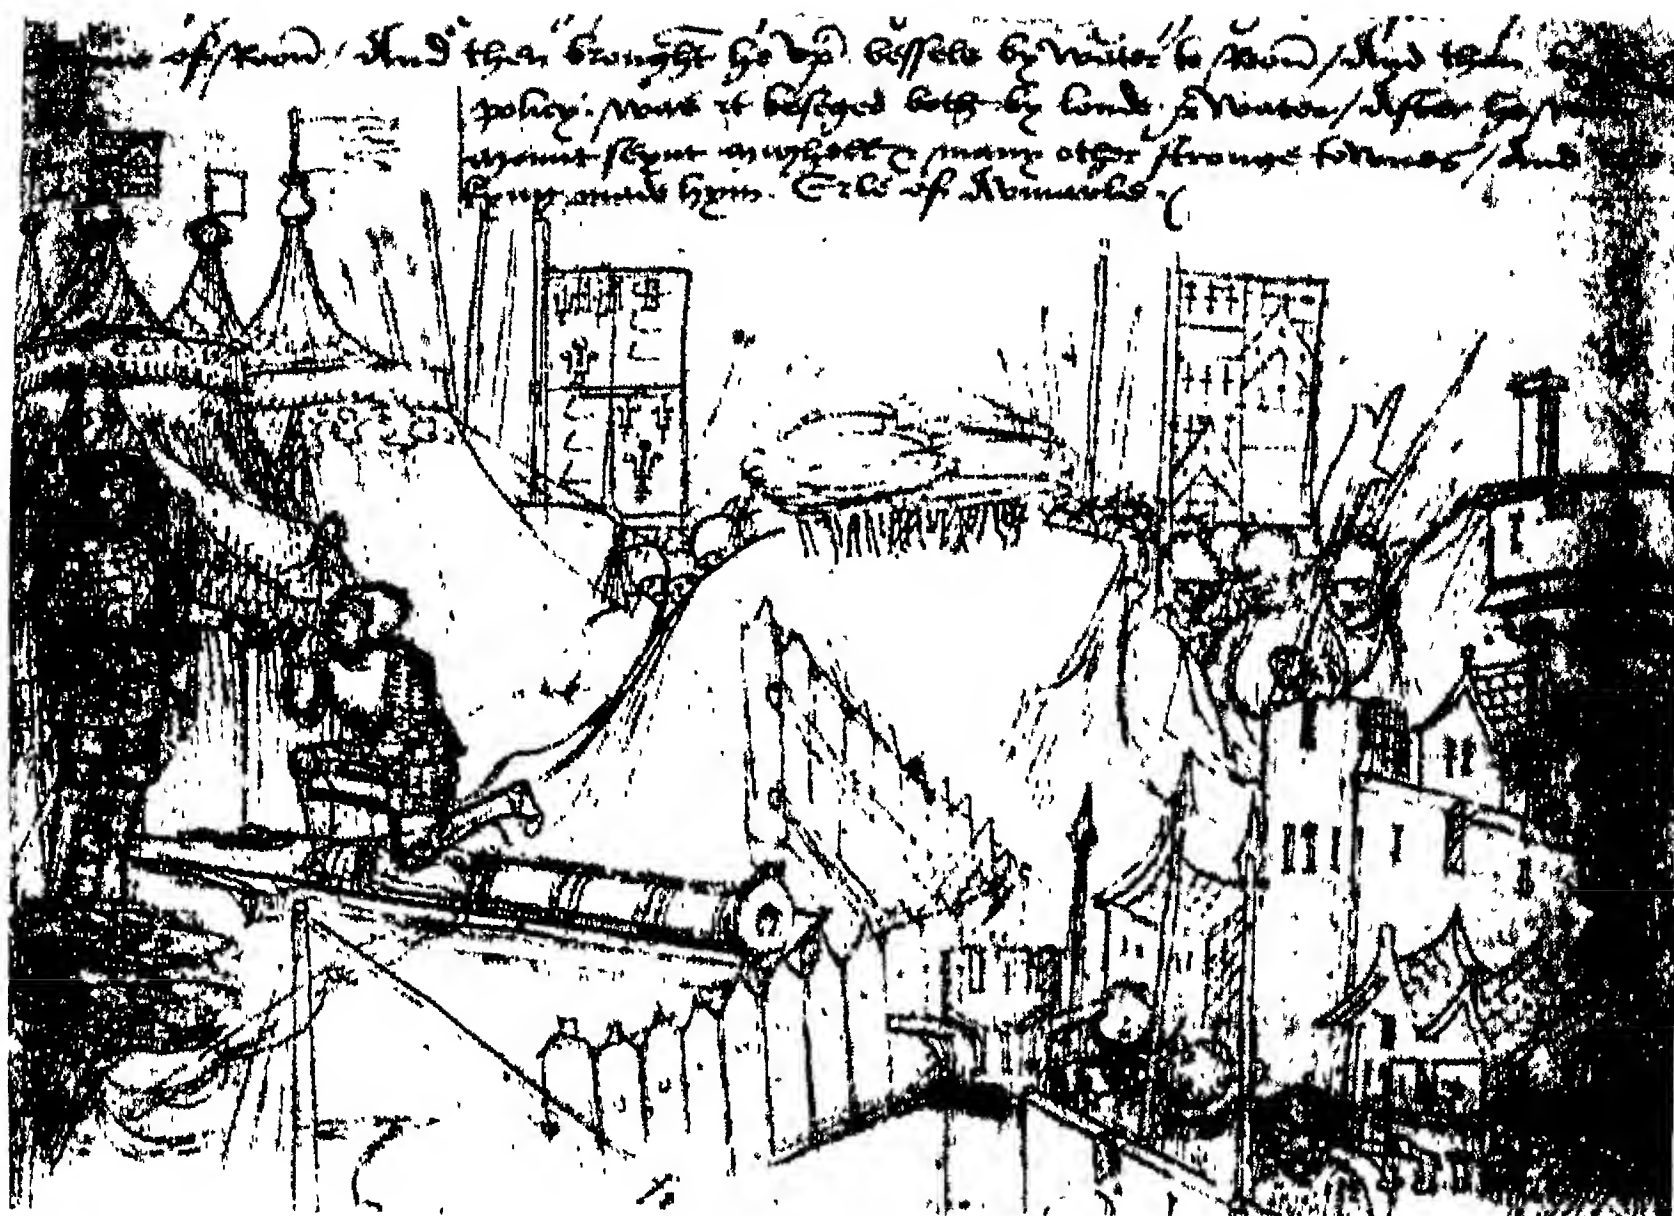 of Roon / And then brought he vp vessels by water to Roon / And then
policy was it beseged both by londe & water / After he
mount seynt mighell & many other stronge townes / And
kyng made hym Erle of Awmarle